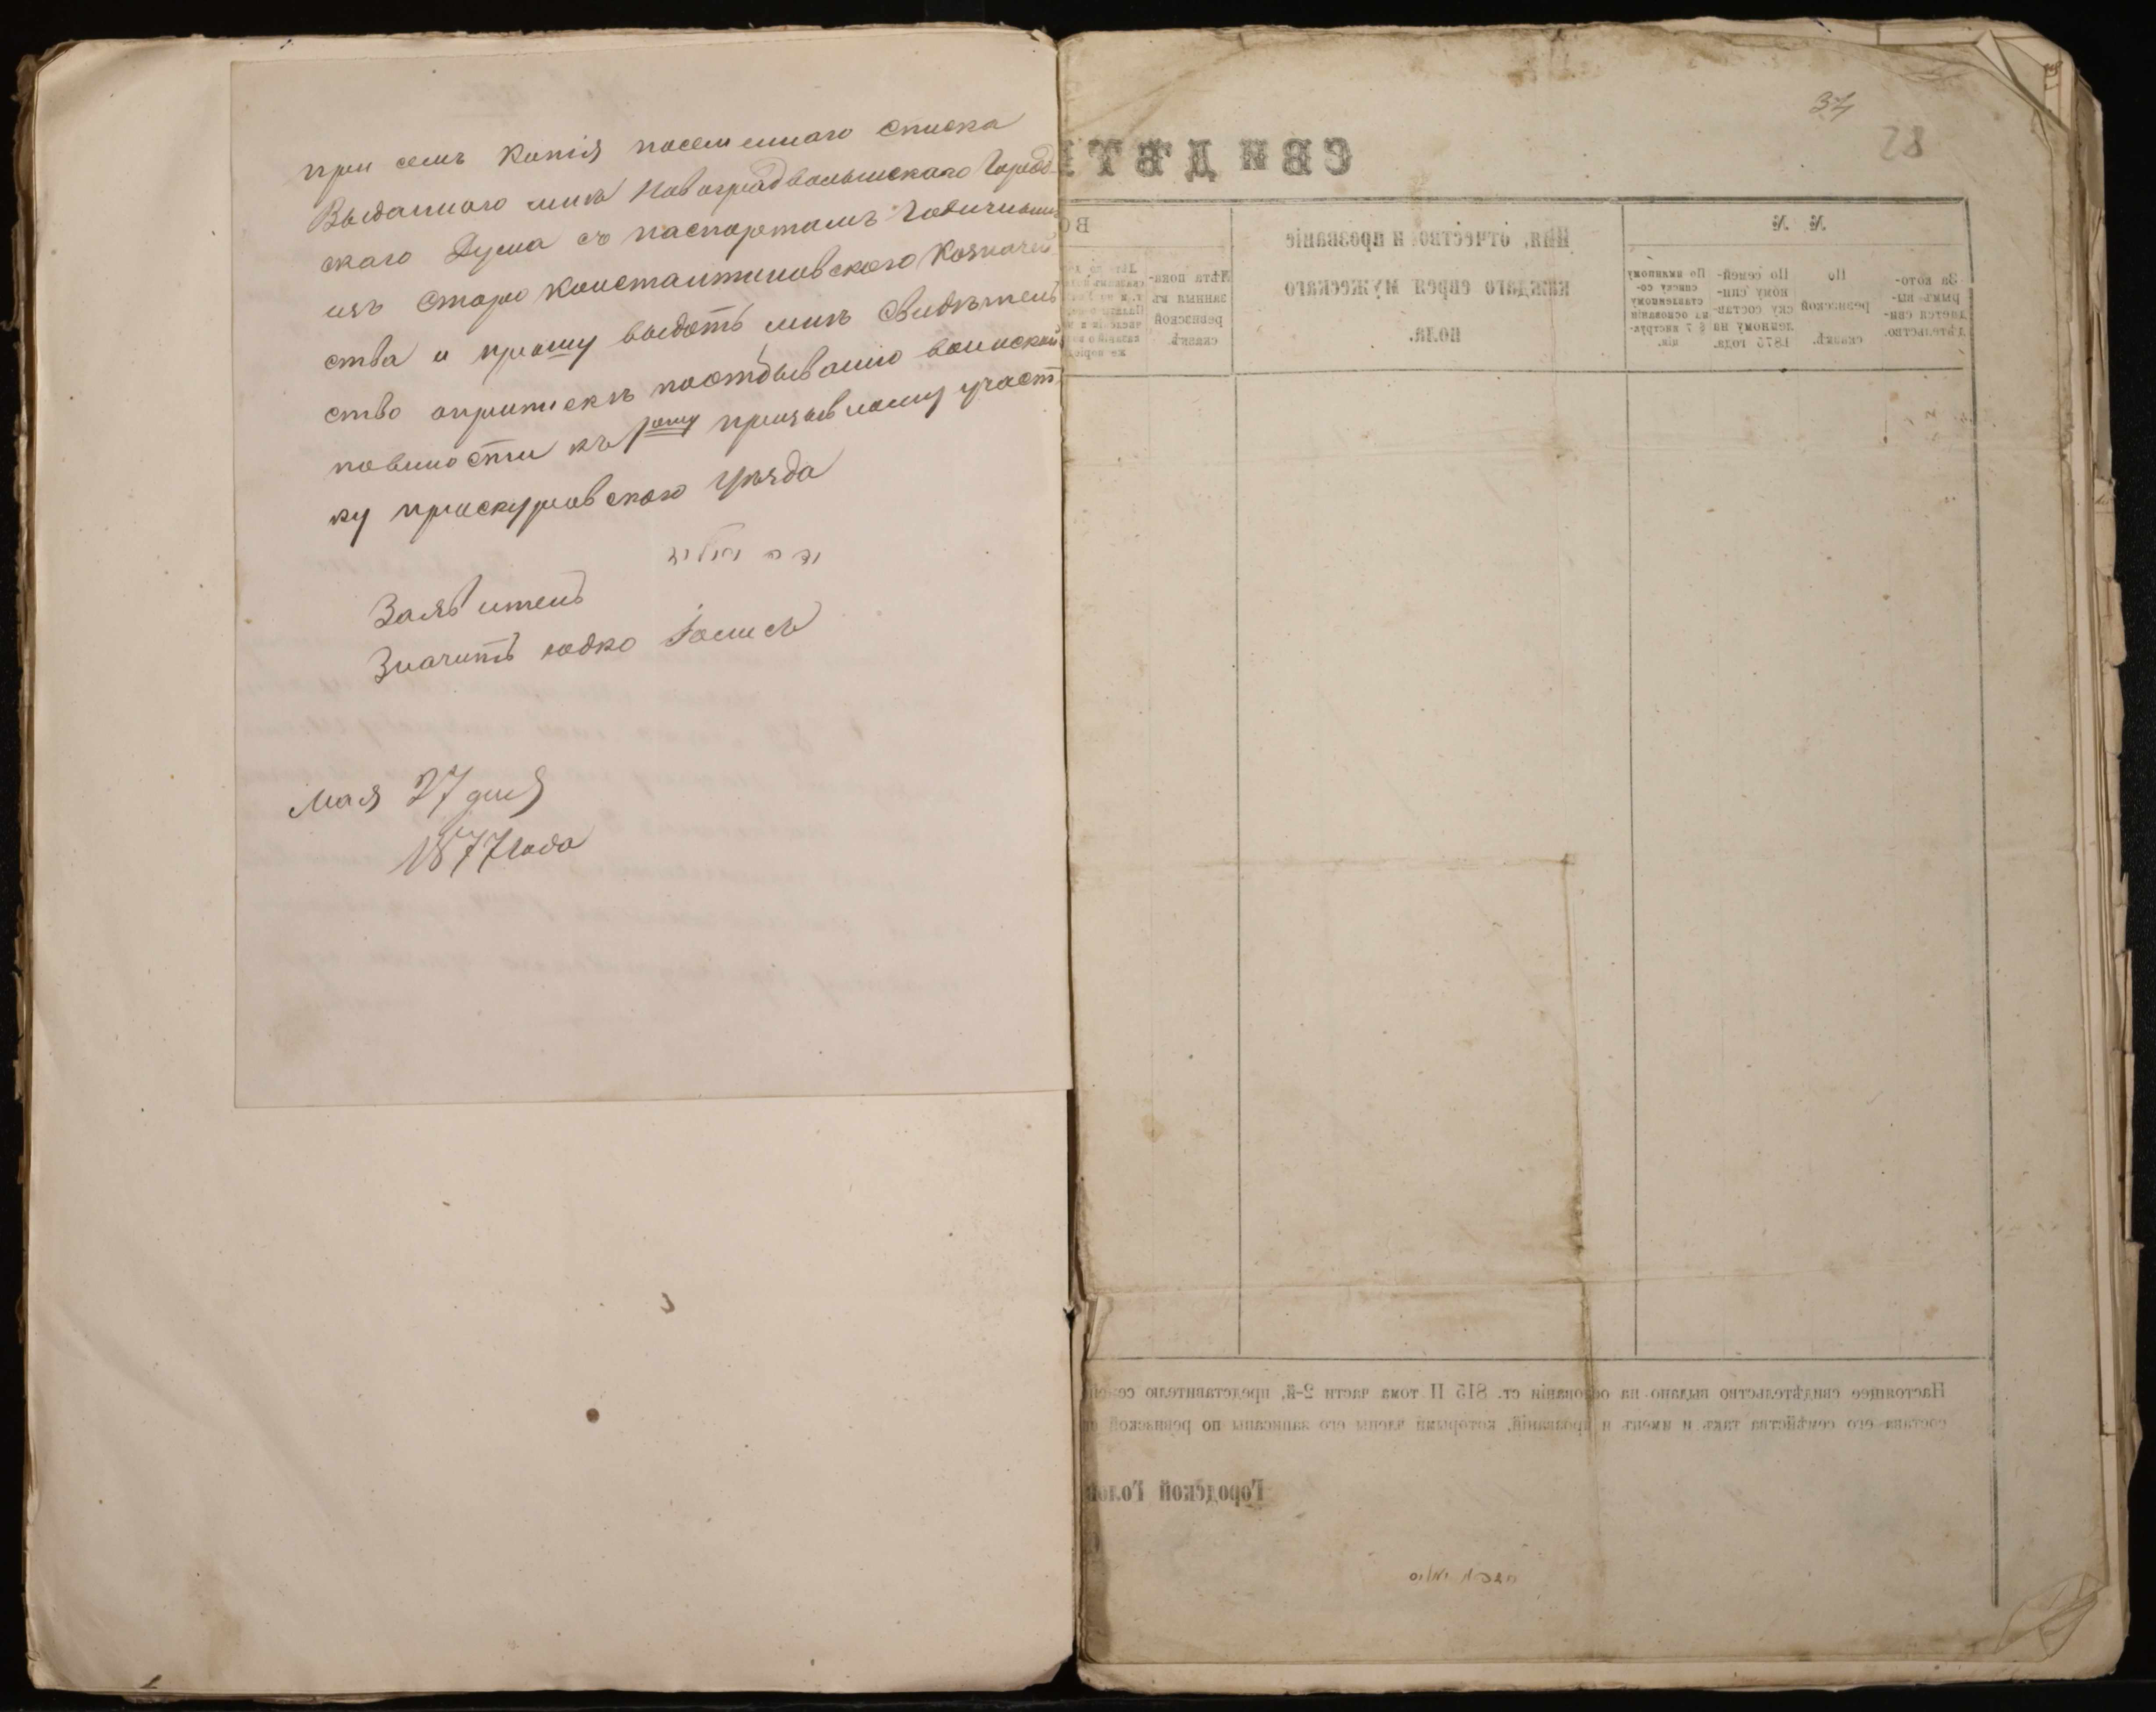 при семъ копія посемейнаго списка
Выданного мнѣ Новоградволынскаго Город-
скаго Дума съ паспортамъ Годичнымъ
изъ Старо Константиновского Козначей
ства и прошу выдать мнѣ Свидѣтель
ство оприпискѣ поотбыванію воинской
повиности къ 1ому призывному участ
ку проскуровского Уѣзда
Заявитель
Значить юдко
Мая 27 дня
1877 года
34
28
СВИДѢТЕ
№ №
За кото-
рымъ вы-
дается сви-
дѣтельство.
По
ревизской
сказкѣ.
По семей-
кому спи-
ску состав-
ленному на
1875 года.
По именному
списку со-
ставленному
на основаніи
§ 7 инструк-
ціи.
Имя, отчество и прозваніе
каждаго еврея мужескаго
пола.
ВО
Лѣта пока-
занныя въ
ревизской
сказкѣ.
Настоящее свидѣтельство выдано на основаніи ст. 815 II тома части 2-й, представителю семей
состава его семѣйства такъ и именъ и прозваній, которыми члены его записаны по ревизской
Городской Голов